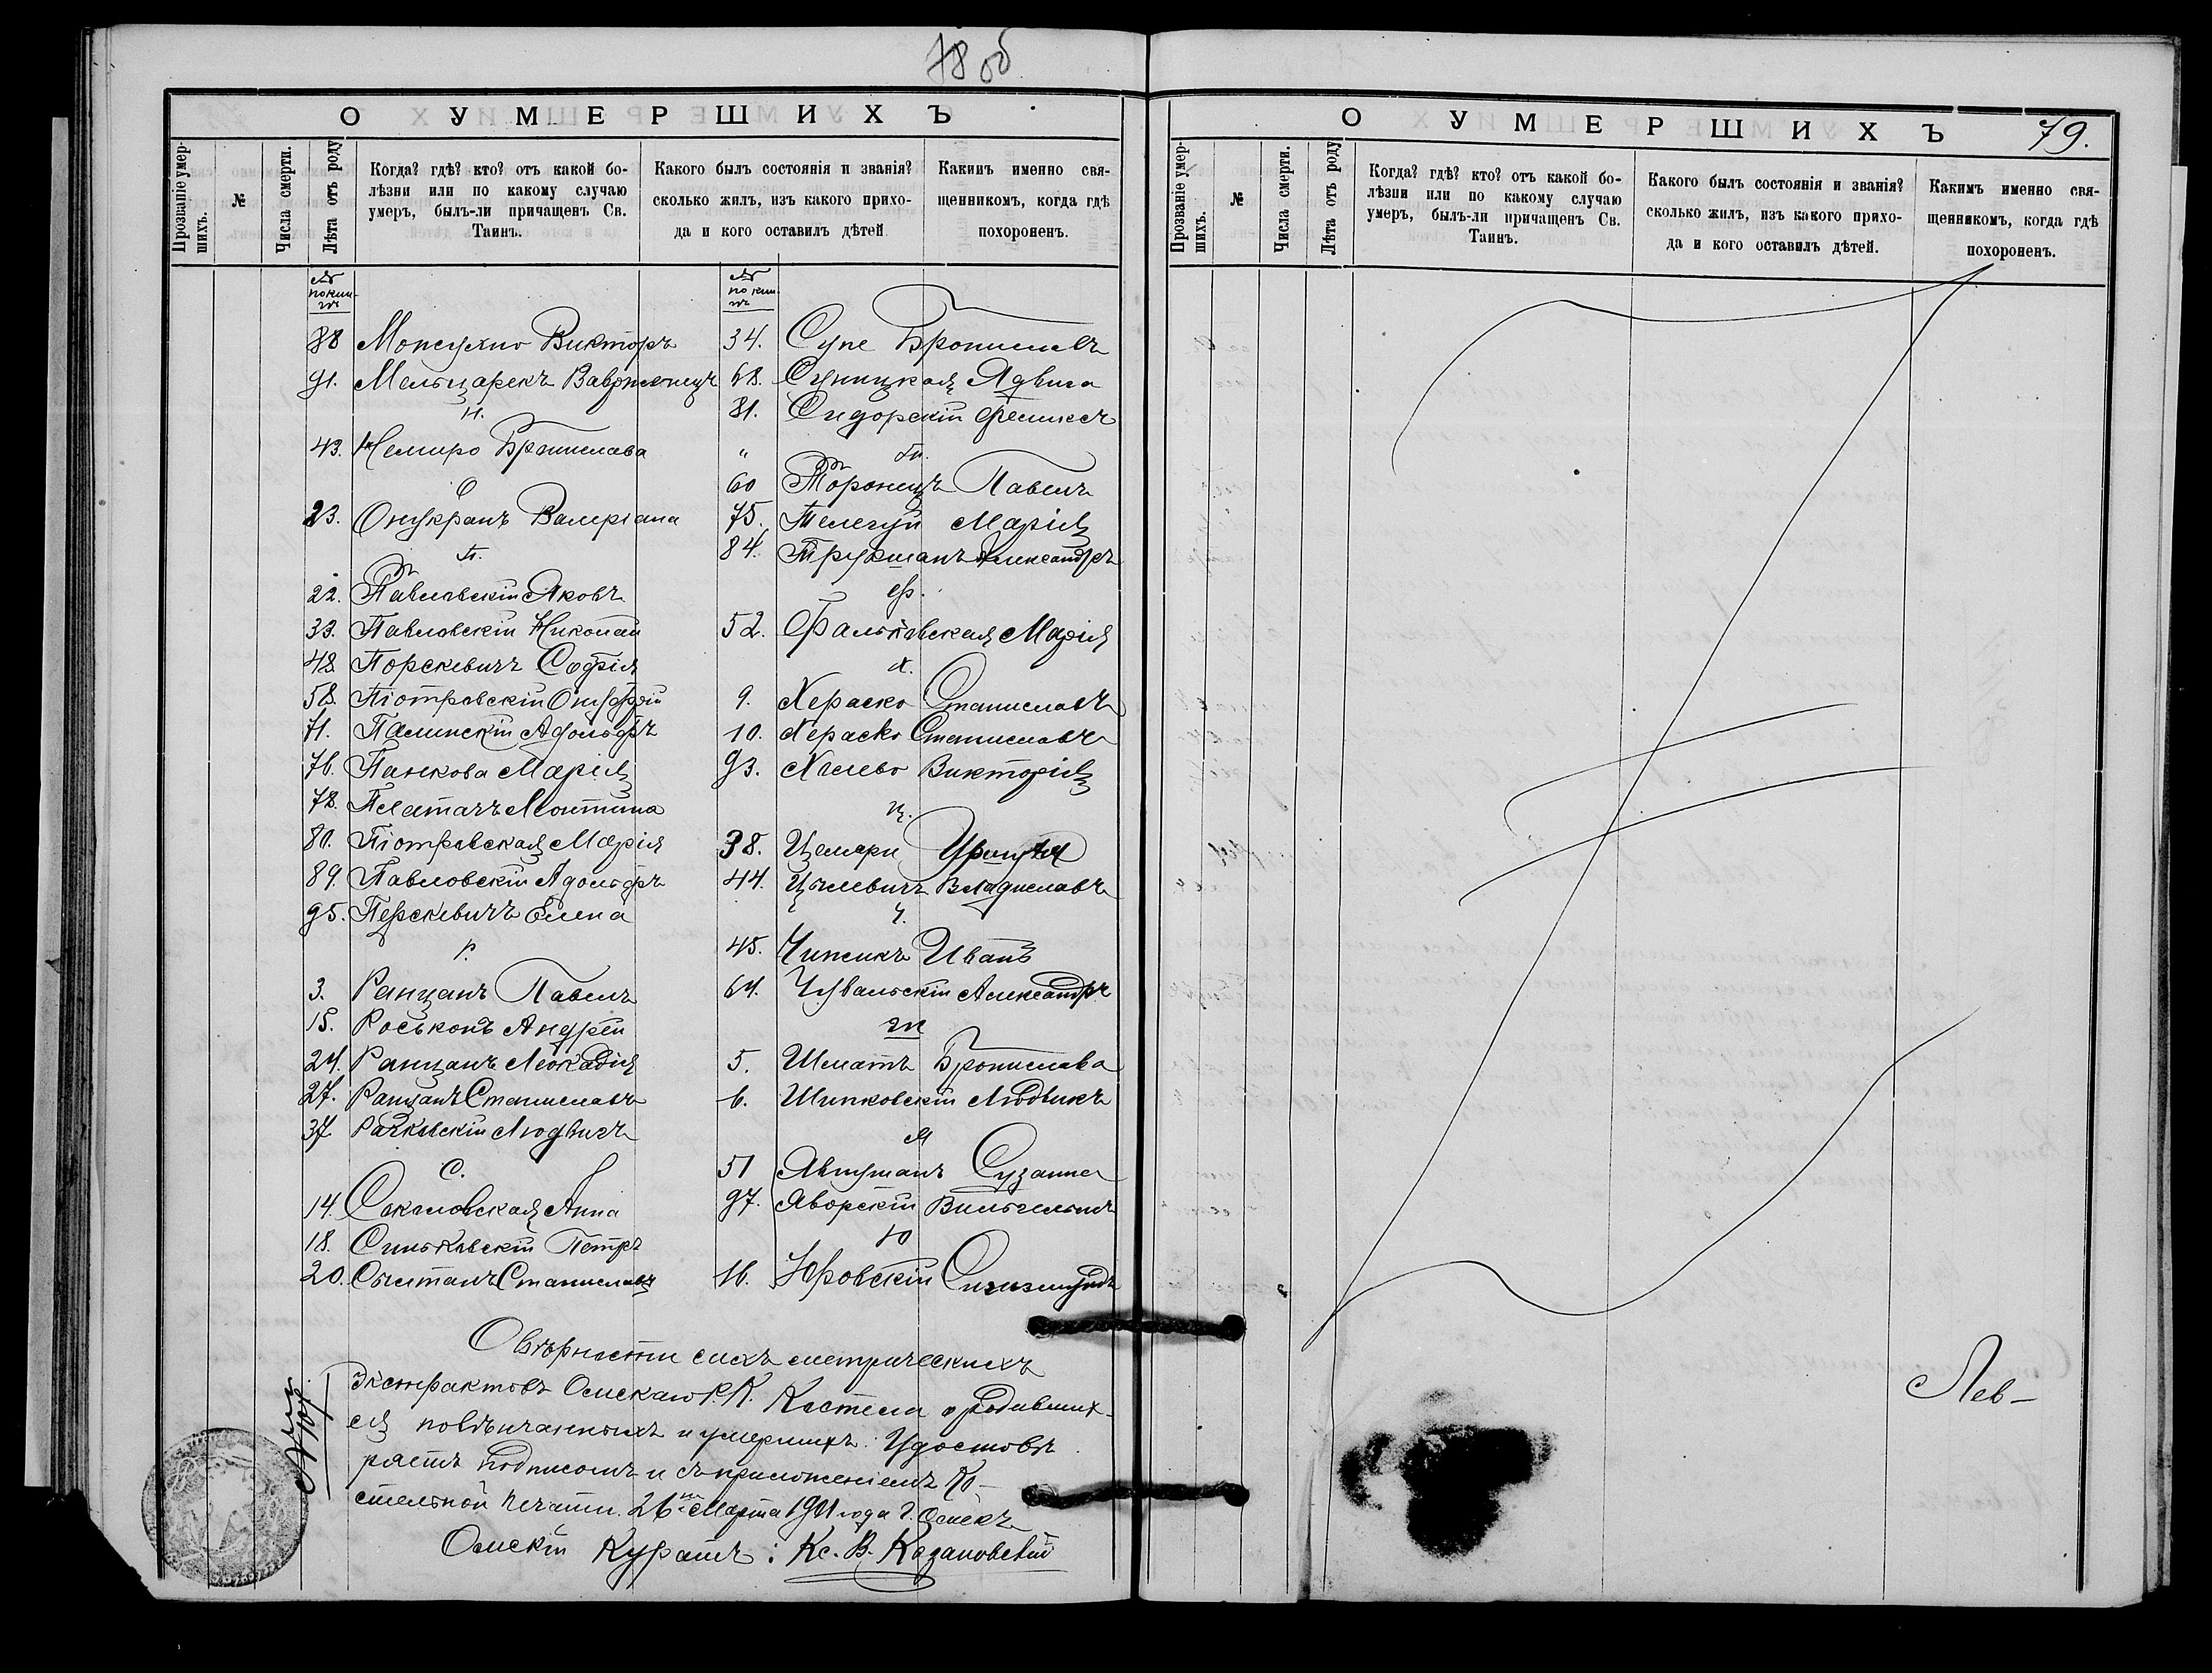 78 об
О УМЕРШИХЪ
Прозваніе умер-
шихъ.
№
Числа смерти.
Лѣта отъ роду
Когда? гдѣ? кто? отъ какой бо-
лѣзни или по какому случаю
умеръ, былъ-ли причащенъ Св.
Таинъ.
Какого былъ состоянія и званія?
сколько жилъ, изъ какого прихо-
да и кого оставилъ дѣтей
Какимъ именно свя-
щенникомъ, когда гдѣ
похороненъ.
№
по кни-
гѣ
88 Викторъ
91. Мельцарекъ
Н.
43. Немиро Бронислава
О
23. Валеріана
П.
22. Павловскій Яковъ
33. Павловскій Николай
48 Порскевичъ Софія
58. Піотровскій Онуфрій
71. Палинскій Адольфъ
76. Панкова Марія
78. Платачъ
80. Піотровская Марія
89. Павловскій Адольфъ
95. Перскевичъ Елена
Р.
3. Ранцанъ Павелъ
15. Роськонъ Андрей
24. Ранцанъ Леокадія
27. Ранцанъ Станиславъ
37. Рачковскій Людвигъ
С.
14. Соколовская Анна
18. Синьковскій Петръ
20. Станиславъ
№
по кни-
гѣ
34. Супе Брониславъ
68. Ядвига
81. Сидорскій Феликсъ
" Т.
60 Торонецъ Павелъ
75. Телегуй Марія
84. Трухманъ Александръ
Ф.
52. Фальковская Марія
Х.
9. Хераско Станиславъ
10. Хераско Станиславъ
93. Хмлево Викторія
Ц.
38. Цемери
44. Цылевичъ Владиславъ
Ч.
45. Чипсикъ Иванъ
64. Чувальскій Александръ
Ш
5. Шматъ Бронислава
6. Шипковскій Людвикъ
Я
51 Явгуманъ Сузанна
97. Яворскій Вильгельмъ
Ю
16. Юровскій Сигизмундъ
О вѣрности сихъ метрическихъ
экстрактовъ Омскаго Р. К. Костела о родивших-
ся повѣнчанныхъ и умершихъ. Удостовѣ
ряетъ подписомъ и съ приложеніемъ Ко-
стельной печати. 26го Марта 1901 года г. Омскъ
Омскій Куратъ: Кс. В. Казановскій
О УМЕРШИХЪ
79.
Прозваніе умер-
шихъ.
№
Числа смерти.
Лѣта отъ роду
Когда? гдѣ? кто? отъ какой бо-
лѣзни или по какому случаю
умеръ, былъ-ли причащенъ Св.
Таинъ.
Какого былъ состоянія и званія?
сколько жилъ, изъ какого прихо-
да и кого оставилъ дѣтей.
Какимъ именно свя-
щенникомъ, когда гдѣ
похороненъ.
Лев-